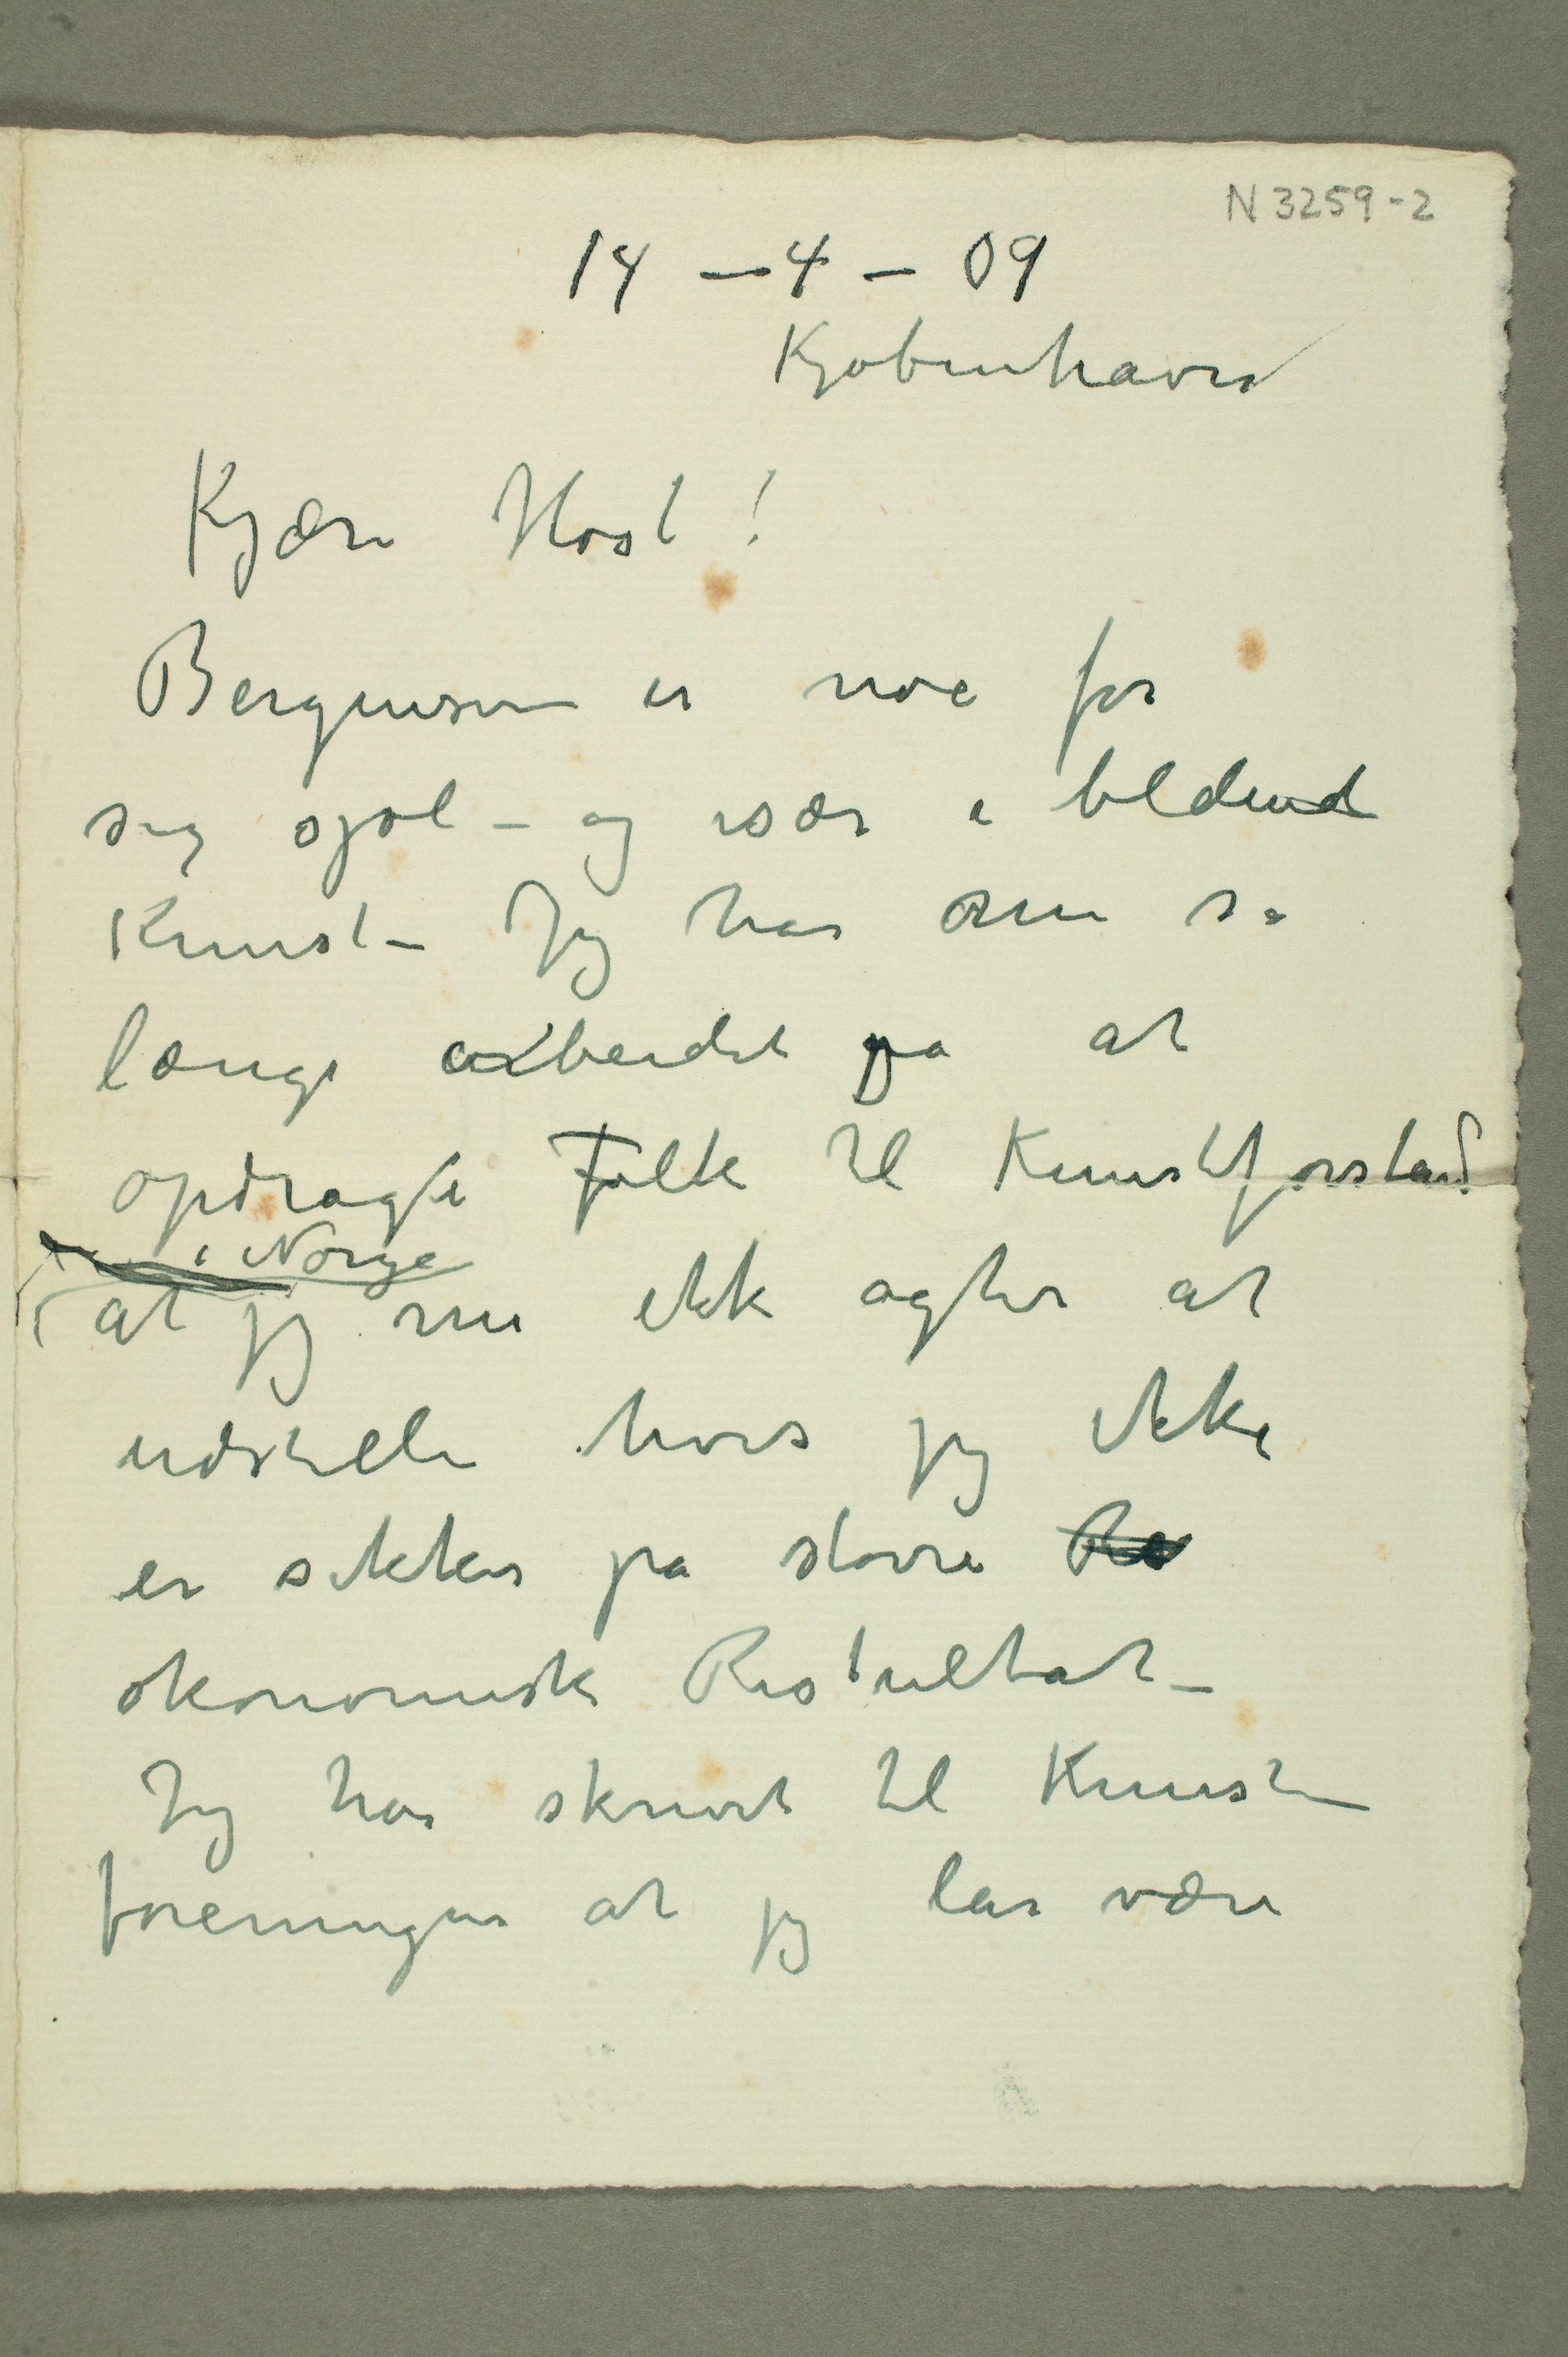 N 3259-2
14 – 4 – 09
Kjøbenhavn
Kjære Høst!
Bergenserne er noe for
sig sjøl – og især i bildend
Kunst – Jeg har nu så
længe arbeidet på at
opdrage Folk til Kunstforstand
i Norge
at jeg nu ikke agter at
udstille hvis jeg ikke
er sikker på større Re
økonomisk Restultat –
Jeg har skrivet til Kunst
foreningen at jeg lar være